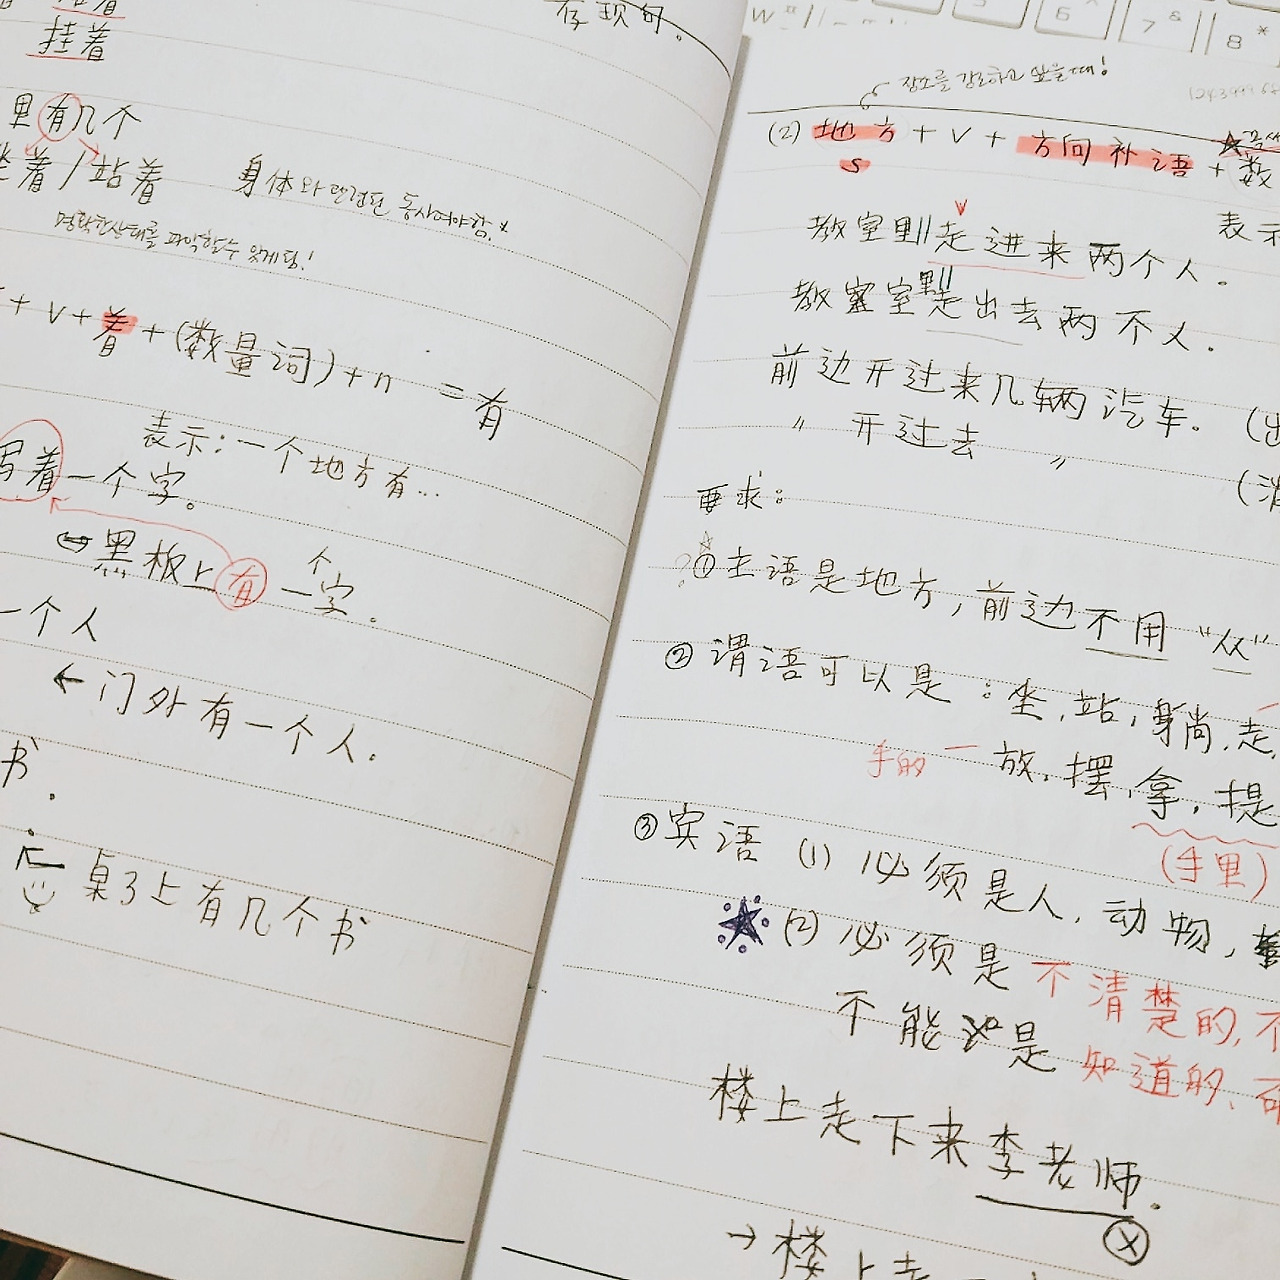 存现句。
挂着
里有几个
坐着/站着
身体와 연결된 동사여야함.
명확한상태를 파악할수 있게됨!
+ V + 着 + (数量词) + n = 有
表示: 一个地方有...
写着一个字。
黑板上有一个字。
一个人
← 门外有一个人.
书.
桌子上有几个书
W 6 ^ 7 & 8 *
장소를 강조하고 싶을때!
(2) 地方 + V + 方向补语 + 数
S
表示
教室里走进来两个人.
教室里走出去两个人.
前边开过来几辆汽车. (出
〃 开过去 〃 (消
要求:
? ☆ ① 主语是地方, 前边不用 "从"
② 谓语可以是: 坐, 站, 躺, 走,
手的 一 放, 摆, 拿, 提
(手里)
③ 宾语 (1) 必须是人, 动物,
★ (2) 必须是不清楚的, 不
不能是知道的,
楼上走下来李老师.
Ⓧ
→ 楼上走